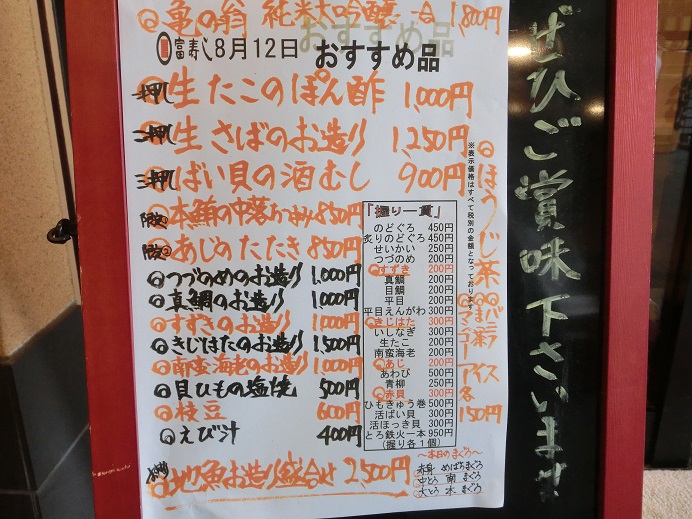 亀の翁 純米大吟醸 一合 1,800円
富寿し8月12日 おすすめ品
一押し 生たこのぽん酢 1,000円
二押し 生さばのお造り 1,250円
三押し ばい貝の酒むし 900円
本鮪の中落おつまみ 850円
あじのたたき 850円
つづのめのお造り 1,000円
真鯛のお造り 1,000円
すずきのお造り 1,000円
きじはたのお造り 1,500円
南蛮海老のお造り 1,000円
貝ひもの塩焼 500円
枝豆 600円
えび汁 400円
地魚お造り盛合せ 2,500円
「握り一貫」
のどぐろ 450円
炙りのどぐろ 450円
せいかい 250円
つづのめ 200円
すずき 200円
真鯛 200円
目鯛 200円
平目 200円
平目えんがわ 300円
きじはた 300円
いしなぎ 300円
生たこ 200円
南蛮海老 200円
あじ 200円
あわび 500円
青柳 250円
赤貝 300円
ひもきゅう巻 500円
活ばい貝 300円
活ほっき貝 300円
とろ鉄火一本 950円
(握り各1個)
~本日のまぐろ~
赤身 めばちまぐろ
中とろ 南まぐろ
大とろ 本まぐろ
※表示価格はすべて税別の金額となっております
ほうじ茶
バニラ
マンゴーアイス
各150円
ぜひご賞味下さいませ